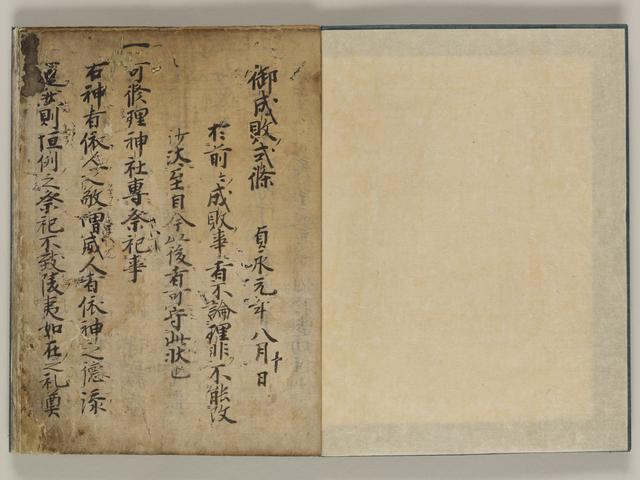 御成敗式條 貞永元年八月十日
於前々成敗事者不論理非不能改
沙汰至自今以後者可守此状也
一可修理神社專祭祀事
右神者依人之敬増威人者依神之徳添
運然則恒例之祭祀不致陵夷如在之礼奠